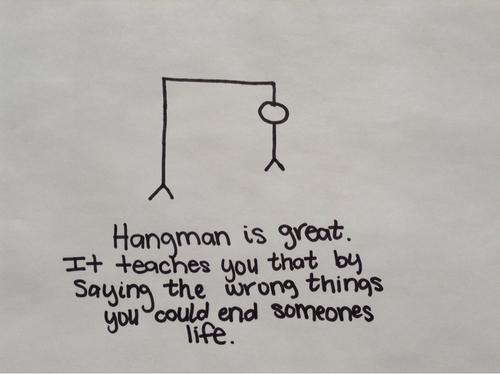 Hangman is great.
It teaches you that by
Saying the wrong things
you could end someones
life.